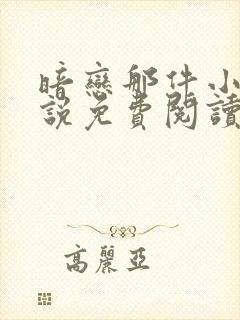 暗戀那件小
說免費閱讀
高麗亞